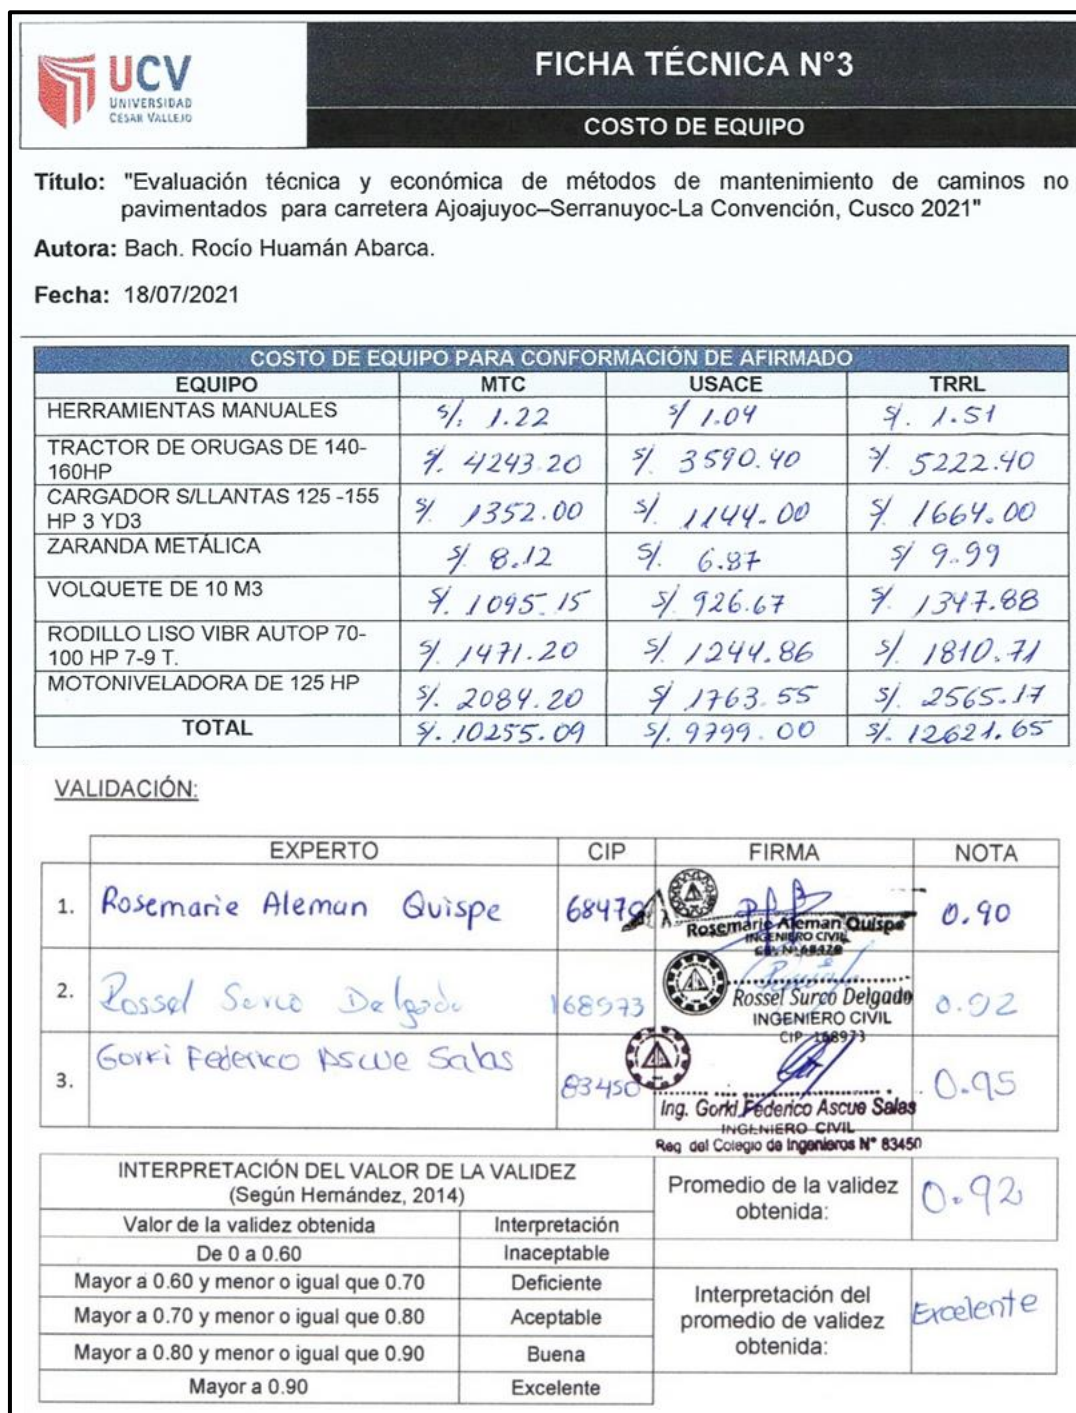 UCV
UNIVERSIDAD
CÉSAR VALLEJO
FICHA TÉCNICA N°3
COSTO DE EQUIPO
Título: "Evaluación técnica y económica de métodos de mantenimiento de caminos no
pavimentados para carretera Ajoajuyoc–Serranuyoc-La Convención, Cusco 2021"
Autora: Bach. Rocío Huamán Abarca.
Fecha: 18/07/2021
COSTO DE EQUIPO PARA CONFORMACIÓN DE AFIRMADO
EQUIPO MTC USACE TRRL
HERRAMIENTAS MANUALES S/. 1.22 S/ 1.04 S/. 1.51
TRACTOR DE ORUGAS DE 140-
160HP S/. 4243.20 S/. 3590.40 S/. 5222.40
CARGADOR S/LLANTAS 125 -155
HP 3 YD3 S/. 1352.00 S/. 1144.00 S/ 1664.00
ZARANDA METÁLICA S/. 8.12 S/. 6.87 S/ 9.99
VOLQUETE DE 10 M3 S/. 1095.15 S/ 926.67 S/. 1347.88
RODILLO LISO VIBR AUTOP 70-
100 HP 7-9 T. S/. 1471.20 S/. 1244.86 S/. 1810.71
MOTONIVELADORA DE 125 HP S/. 2084.20 S/ 1763.55 S/. 2565.17
TOTAL S/. 10255.09 S/. 9799.00 S/. 12621.65
VALIDACIÓN:
EXPERTO CIP FIRMA NOTA
1. Rosemarie Aleman Quispe 68470 0.90
Rosemarie Aleman Quispe
INGENIERO CIVIL
2. Rossel Surco Delgado 168973 0.92
Rossel Surco Delgado
INGENIERO CIVIL
CIP 168973
3. Gorki Federico Ascue Salas 83450 0.95
Ing. Gorki Federico Ascue Salas
INGENIERO CIVIL
Reg. del Colegio de Ingenieros N° 83450
INTERPRETACIÓN DEL VALOR DE LA VALIDEZ
(Según Hernández, 2014)
Valor de la validez obtenida Interpretación
De 0 a 0.60 Inaceptable
Mayor a 0.60 y menor o igual que 0.70 Deficiente
Mayor a 0.70 y menor o igual que 0.80 Aceptable
Mayor a 0.80 y menor o igual que 0.90 Buena
Mayor a 0.90 Excelente
Promedio de la validez
obtenida: 0.92
Interpretación del
promedio de validez
obtenida: Excelente